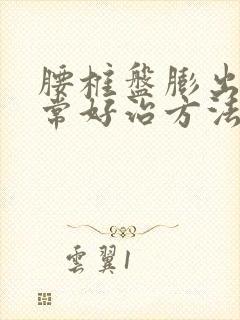 腰柱盤膨出
常好治方法
雲翼1